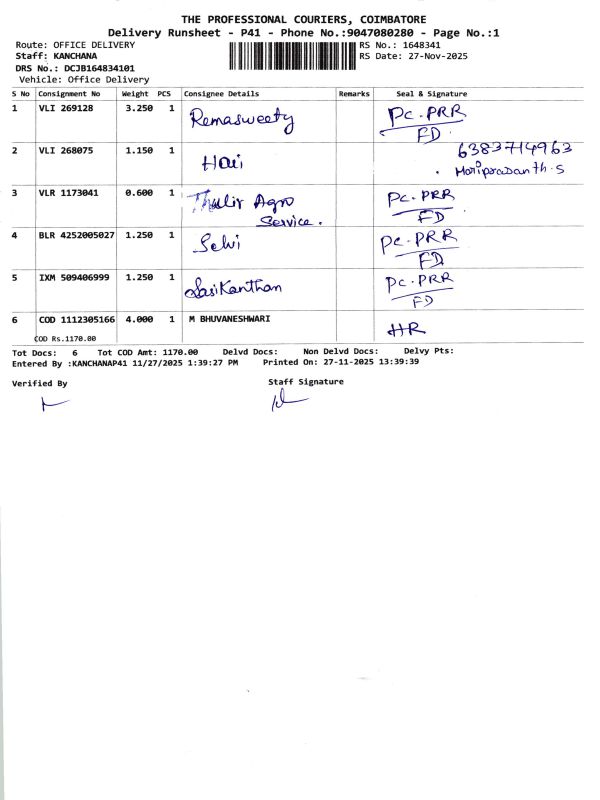 THE PROFESSIONAL COURIERS, COIMBATORE
Delivery Runsheet - P41 - Phone No.:9047080280 - Page No.:1
Route: OFFICE DELIVERY
RS No.: 1648341
Staff: KANCHANA
RS Date: 27-Nov-2025
DRS No.: DCJB164834101
Vehicle: Office Delivery
S No Consignment No Weight PCS Consignee Details Remarks Seal & Signature
1 VLI 269128 3.250 1 Remasweety PC-PRR
FD
2 VLI 268075 1.150 1 Hari 6383714963
Hariprasanth.S
3 VLR 1173041 0.600 1 Thulir Agro PC-PRR
Service. FD
4 BLR 4252005027 1.250 1 Selvi PC-PRR
FD
5 IXM 509406999 1.250 1 Sasikanthan PC-PRR
FD
6 COD 1112305166 4.000 1 M BHUVANESHWARI HR
COD Rs.1170.00
Tot Docs: 6 Tot COD Amt: 1170.00 Delvd Docs: Non Delvd Docs: Delvy Pts:
Entered By :KANCHANAP41 11/27/2025 1:39:27 PM Printed On: 27-11-2025 13:39:39
Verified By Staff Signature